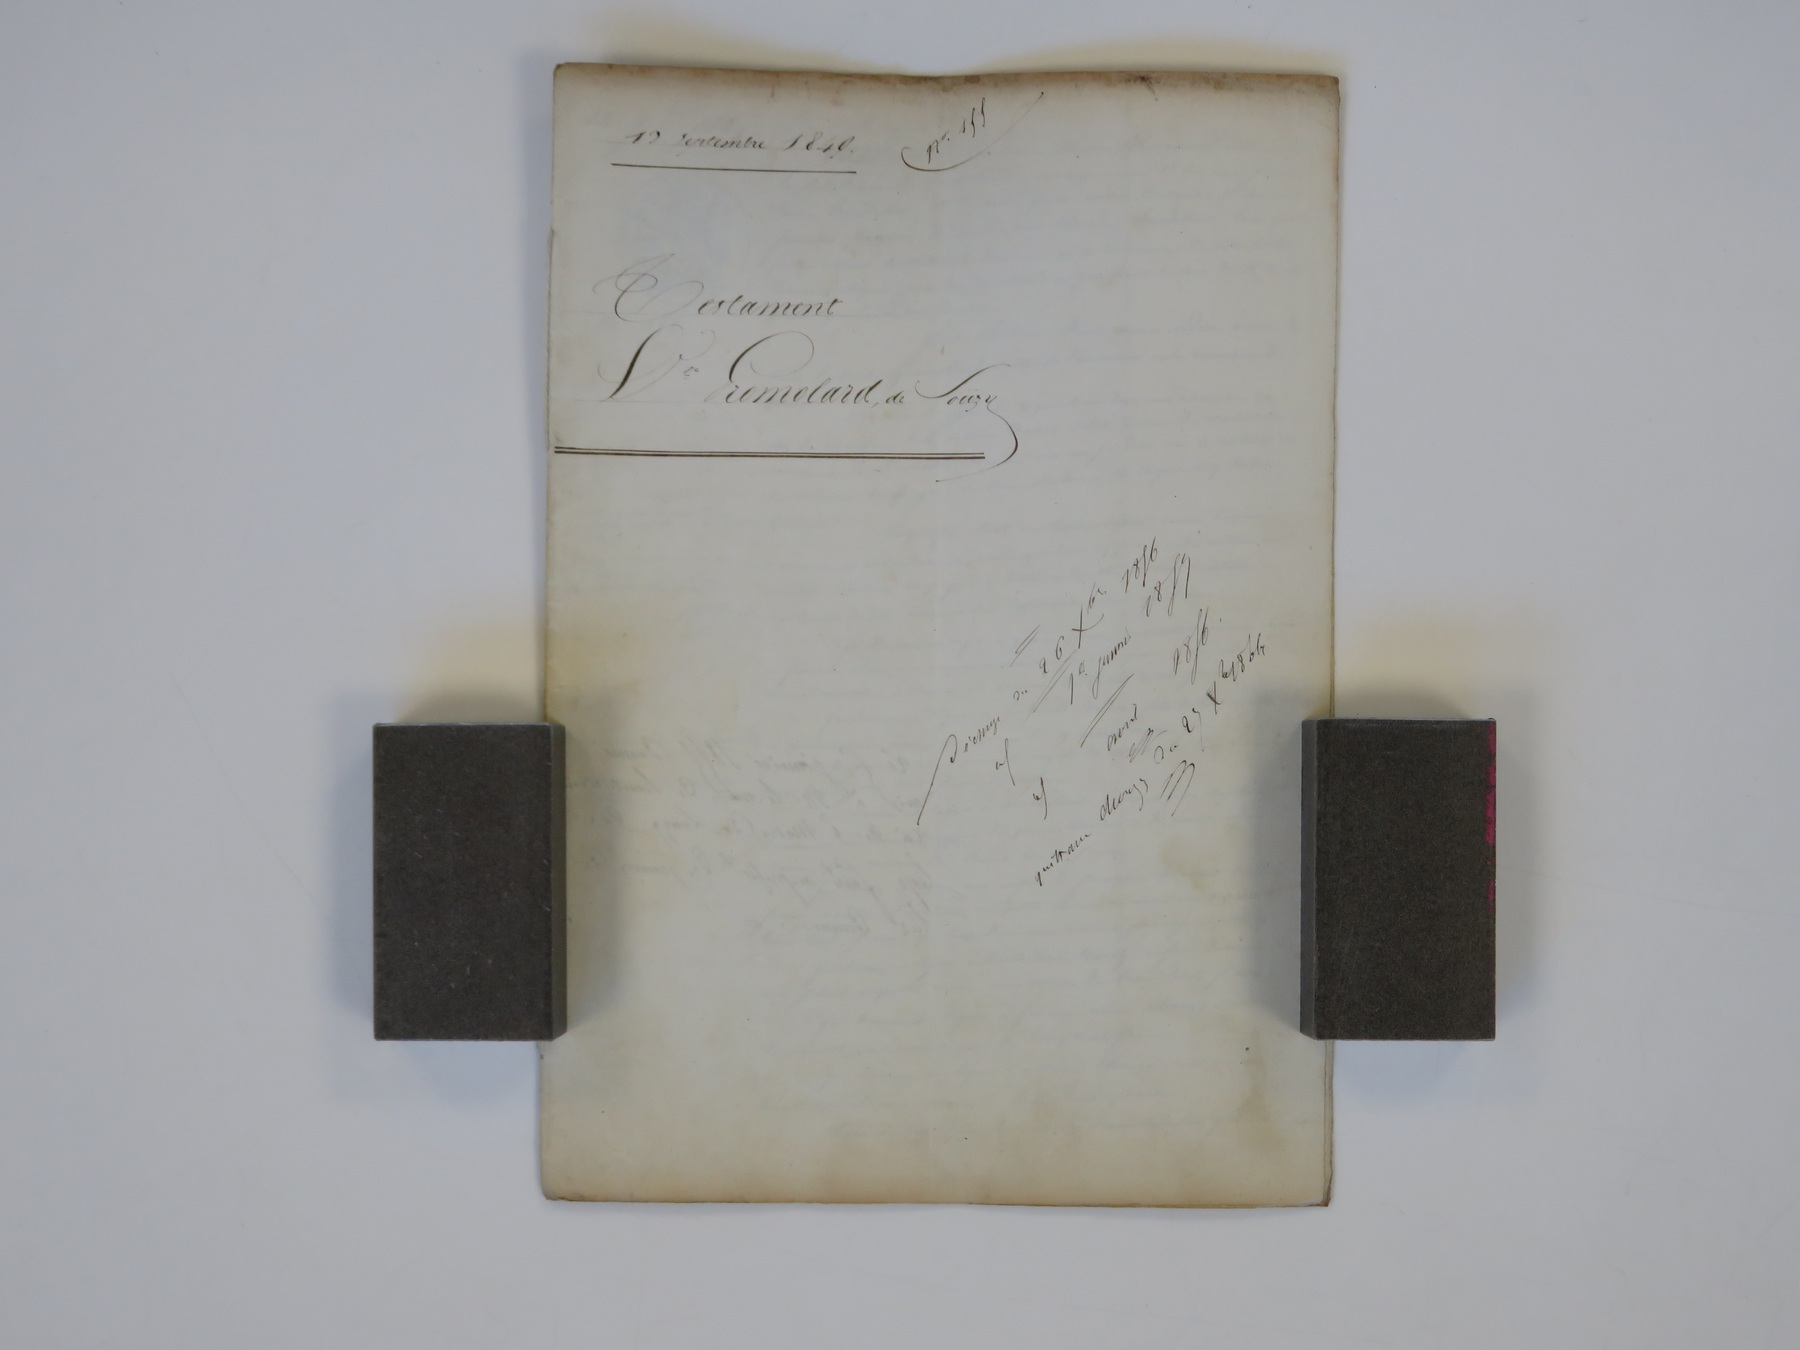 19 Septembre 1849.
no. 155
Testament
Vve Gremelard, de Souzy
Décharge du 26 Xbre 1856
id 1er janvier 1857
id avril 1856.
quittance du 29 Xbre 1864